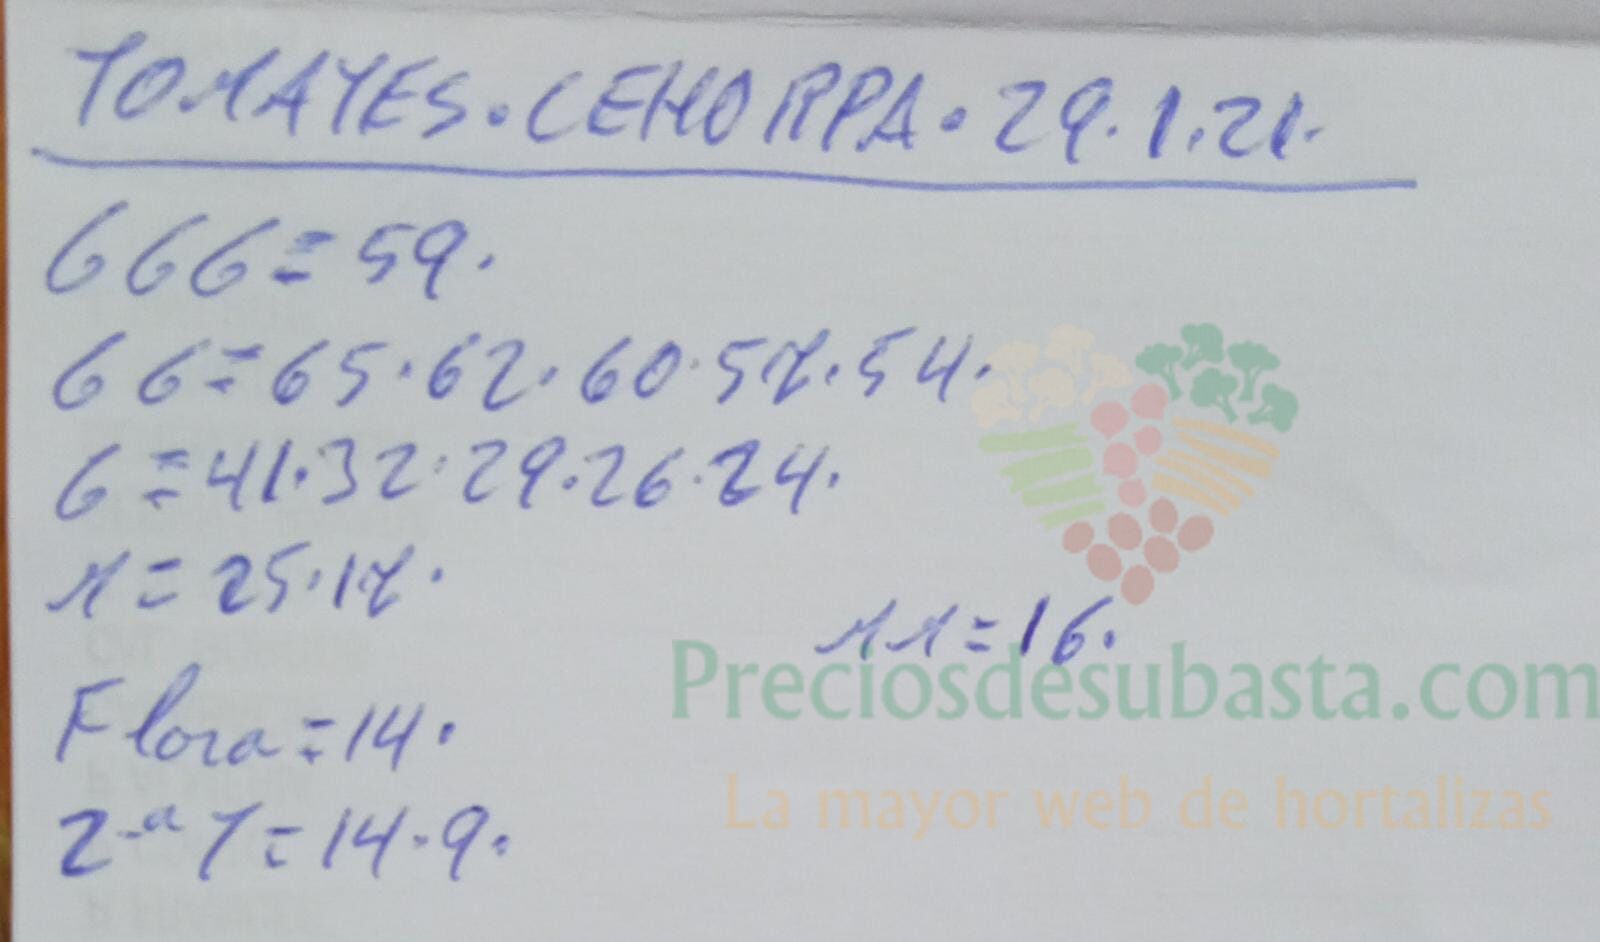 TOMATES. CEHORPA. 29.1.21.
GGG = 59.
GG = 65.62.60.57.54.
G = 41.32.29.26.24.
M = 25.17.
MM = 16.
Preciosdesubasta.com
Flora = 14.
La mayor web de hortalizas
2-ª T = 14.9.